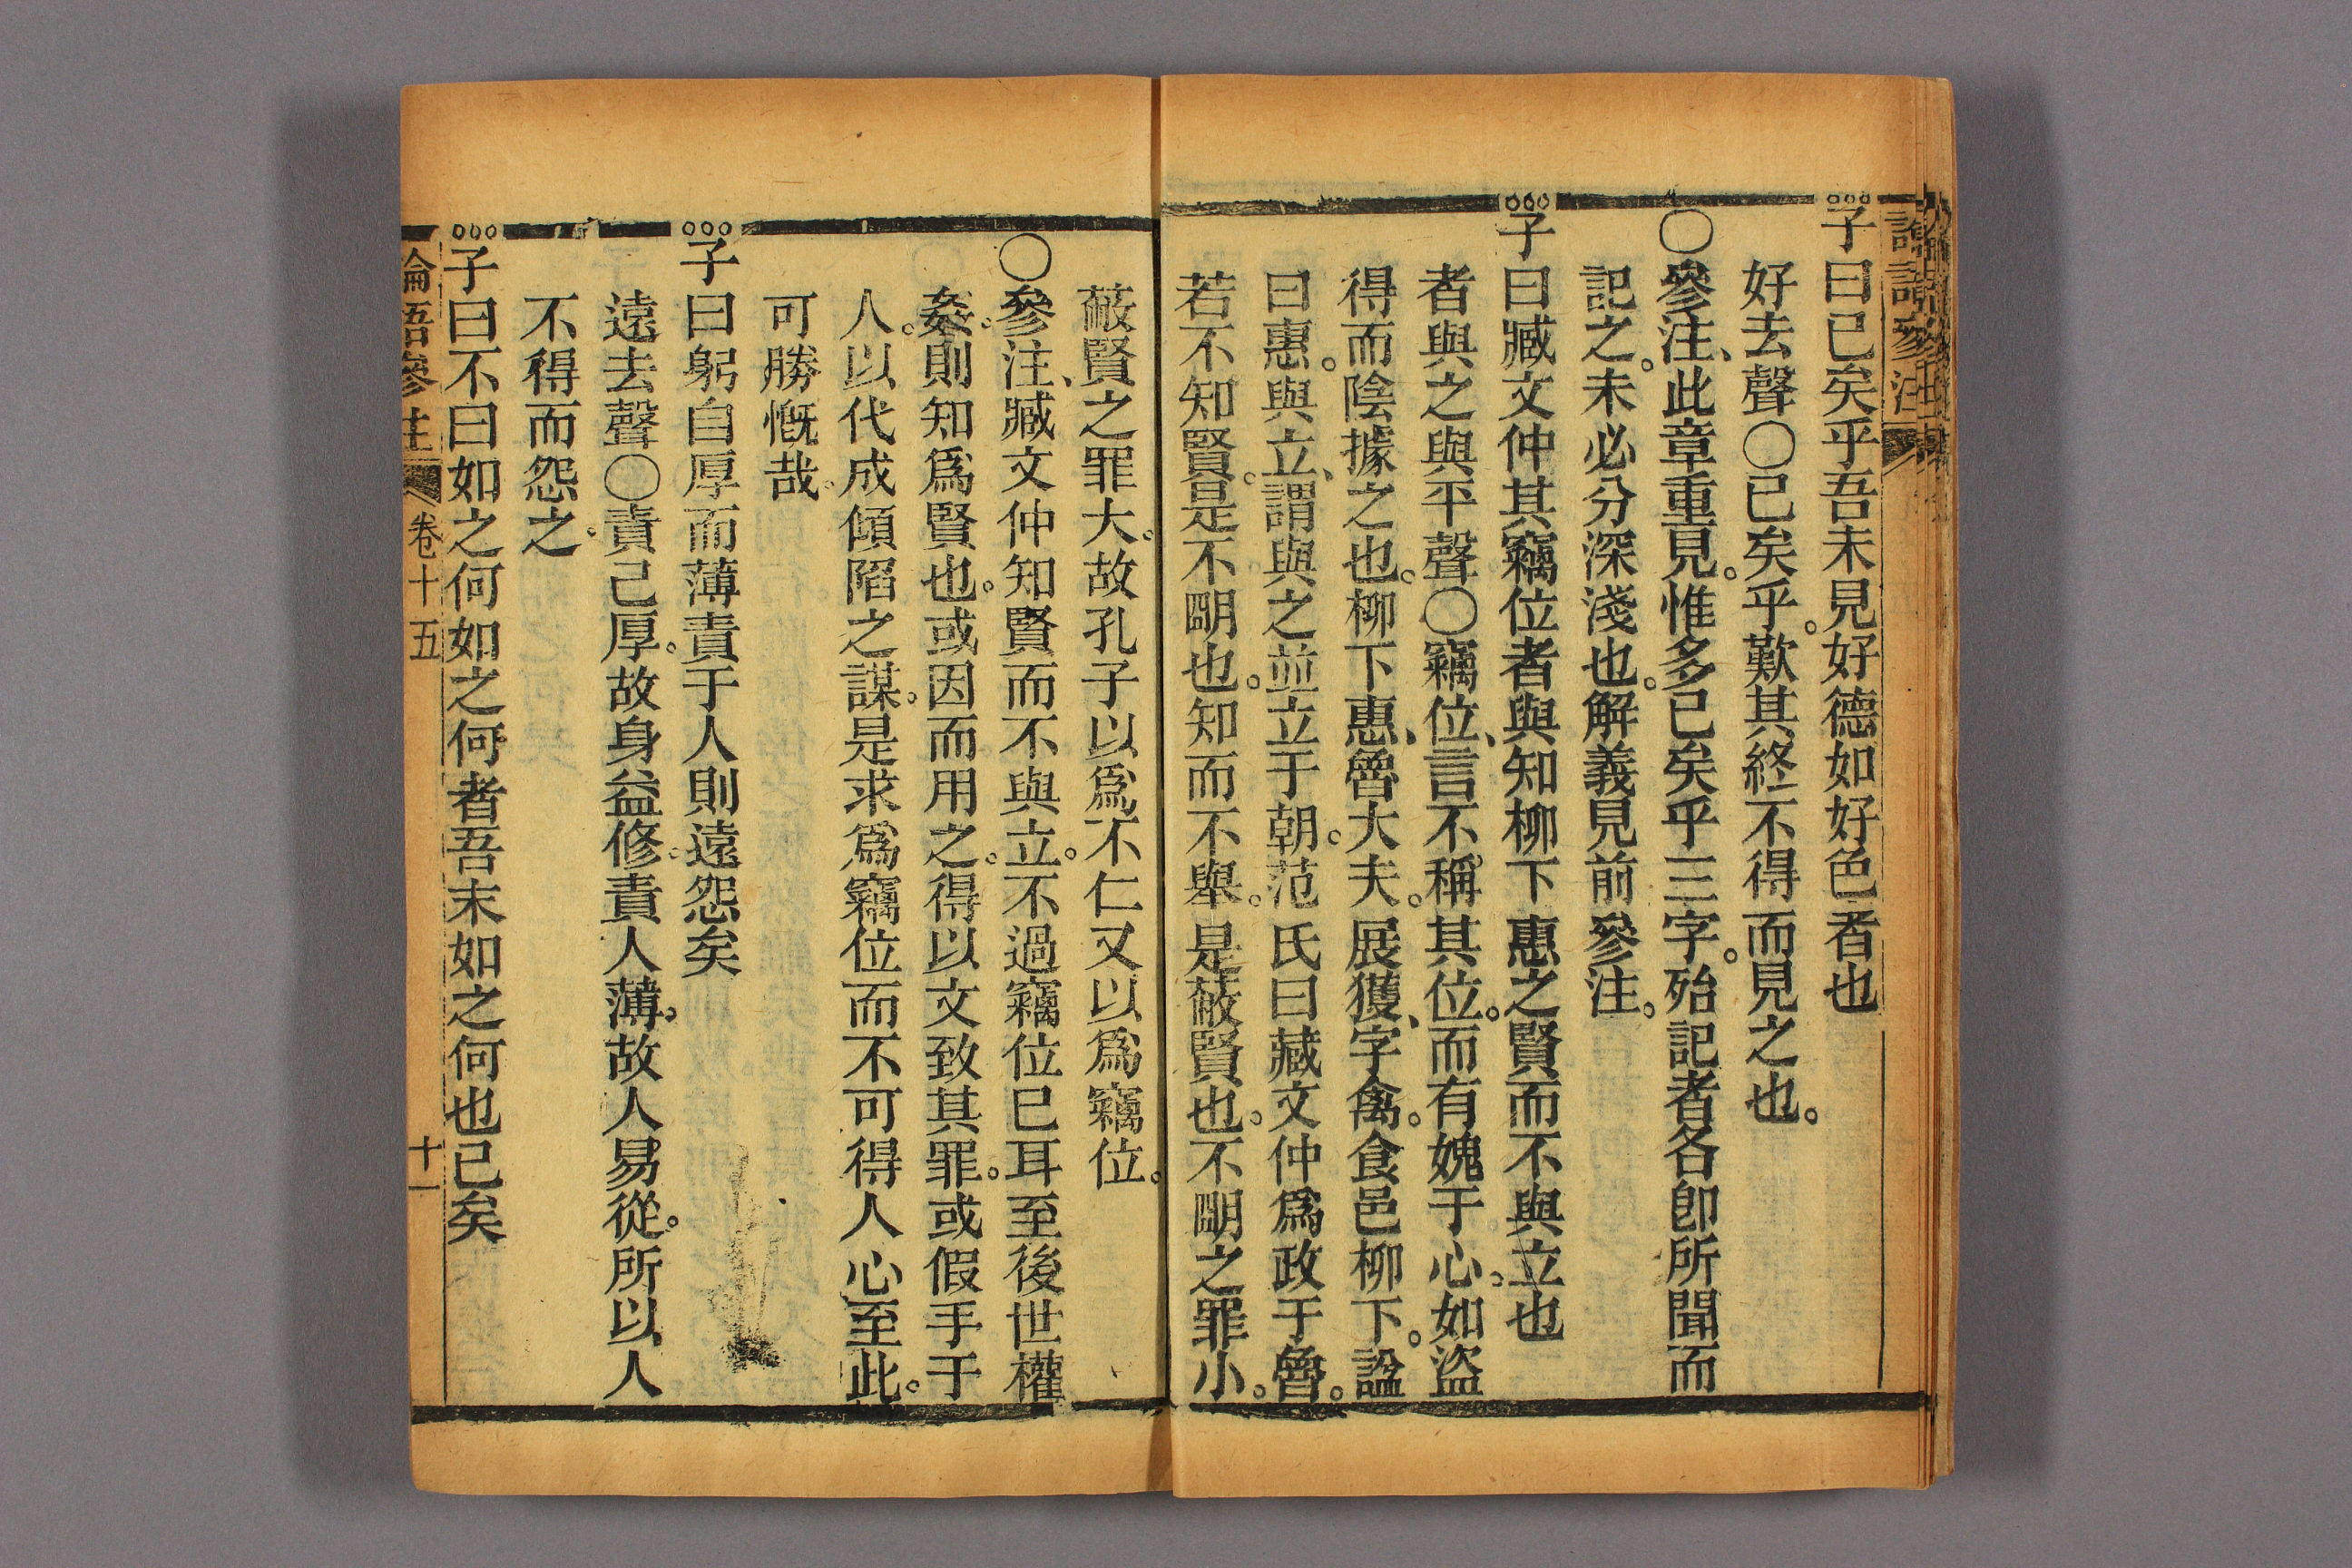 子曰已矣乎吾未見好德如好色者也
好去聲〇已矣乎。歎其終不得而見之也。
〇參注、此章重見。惟多已矣乎三字。殆記者各卽所聞而
記之。未必分深淺也。解義見前參注。
子曰臧文仲其竊位者與知柳下惠之賢而不與立也
者與之與平聲〇竊位、言不稱其位。而有媿于心。如盜
得而陰據之也。柳下惠、魯大夫。展獲、字禽。食邑柳下。諡
曰惠。與立、謂與之並立于朝。范氏曰藏文仲爲政于魯。
若不知賢。是不明也。知而不舉。是蔽賢也。不明之罪小。
蔽賢之罪大。故孔子以爲不仁又以爲竊位。
〇參注、臧文仲知賢而不與立。不過竊位已耳至後世權
姦。則知爲賢也。或因而用之。得以文致其罪。或假手于
人。以代成傾陷之謀。是求爲竊位而不可得人心至此。
可勝慨哉。
子曰躬自厚而薄責于人則遠怨矣
遠去聲〇責己厚。故身益修。責人薄。故人易從。所以人
不得而怨之。
子曰不曰如之何如之何者吾末如之何也已矣
論語參注 卷十五 十一